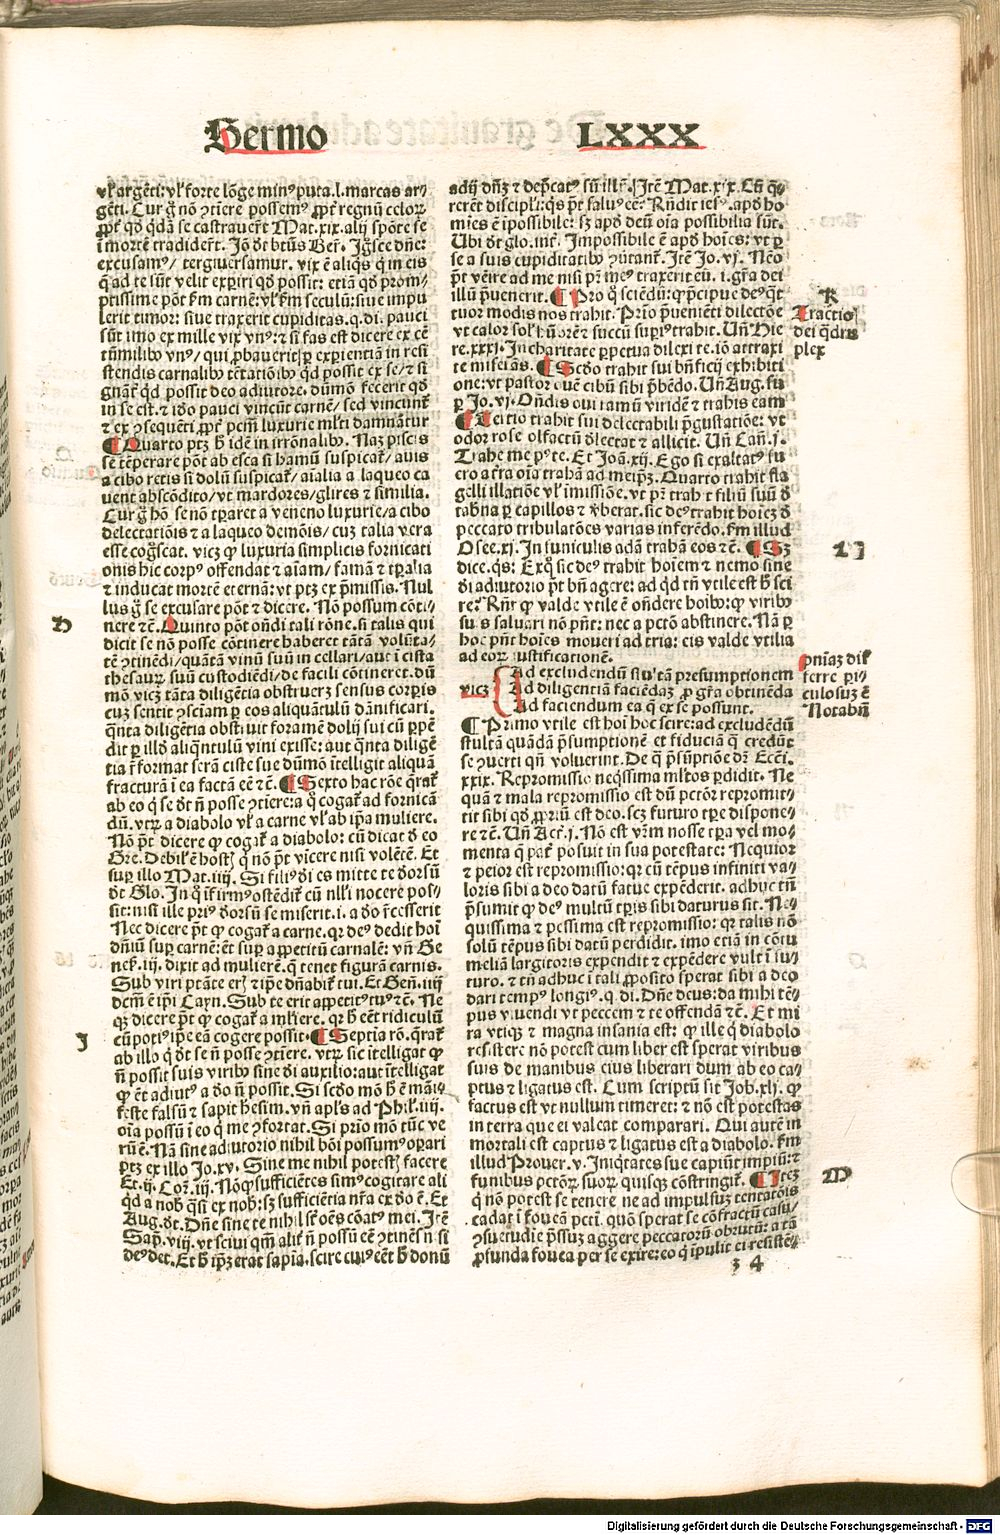 Sermo LXXX
vl̕ argēti: vl̕ forte lōge min⁹ puta .l. marcas ar-
gēti. Cur g̊ nō ꝯtiere possem⁹ ꝓpt̕ regnū celoꝝ
ꝓpt̕ qd̕ q̄dā se castrauerūt Mat. xix. alij spōte se
ī mortē tradiderūt. Jō dt̕ btūs Ber. Jgsce dn̄e:
excusam⁹/ tergiuersamur. vix ē aliq̄s q̄ in eis
q̄ ad te sūt velit exꝑiri qd̕ possit: etiā qd̕ prom/
ptissime pōt fm̄ carnē: vl̕ fm̄ seculū: siue impu
lerit timor: siue traxerit cupiditas. q. di. pauci
sūt imo ex mille vix vn⁹: ⁊ si fas est dicere ex cē
tūmilib⁹ vn⁹/ qui ꝓbauerit ꝑ expientiā in resi
stendis carnalib⁹ tētatiōib⁹ qd̕ possit ex se/ ⁊ si
gnāt̕ qd̕ possit deo adiutore. dūmō fecerit qd̕
in se est. ⁊ iō pauci vincūt carnē/ sed vincunt̕
⁊ ex ꝯsequēti ꝓpt̕ pctm̄ luxurie ml̕ti damnātur
¶ Quarto ptꝫ h̕ idē in irrōnalib⁹. Naꝫ piscis
sē tēperare pōt ab esca si hamū suspicat̕/ auis
a cibo retis si dolū suspicat̕/ aialia a laqueo ca
uent abscōdito/ vt mardores/ glires ⁊ similia.
Cur g̊ hō se nō tꝑaret a veneno luxurie/ a cibo
delectatiōis ⁊ a laqueo demōis/ cuꝫ talia vera
esse cog̊scat. vicꝫ ꝙ luxuria simplicis fornicati
onis hic corp⁹ offendat ⁊ aīam/ famā ⁊ tꝑalia
⁊ inducat mortē eternā: vt ptꝫ ex p̄missis. Nul
lus g̊ se excusare pōt ⁊ dicere. Nō possum cōti/
nere ⁊c̄. Quinto pōt on̄di tali rōne. si talis qui
dicit se nō posse cōtinere haberet tātā volūta/
tē ꝯtinēdi/ quātā vinū suū in cellari/ aut ī cista
thesauꝝ suū custodiēdi/ de facili cōtineret. dū
mō vicꝫ tāta diligētia obstruerꝫ sensus corꝑis
cuꝫ sentit ꝯsciam ꝑ eos aliquātulū dānificari.
q̄nta diligētia obstruit foramē dolij sui cū ꝑpē
dit ꝑ illd̕ aliqntulū vini exisse: aut q̄nta diligē
tia r̄format serā ciste sue dūmō ītelligit aliquā
fracturā ī ea factā eē ⁊c̄. ¶ Sexto hac rōe q̄rat̕
ab eo q̄ se dt̕ nō posse ꝯtiere: a q̊ cogat̕ ad fornicā
dū. vtꝝ a diabolo vl̕ a carne vl̕ ab ip̄a muliere.
Nō pōt dicere ꝙ cogat̕ a diabolo: cū dicat d̕ eo
Gre. Debil̕ ē host̕ q̄ nō pōt vicere nisi volētē. Et
suꝑ illo Mat. iiij. Si fili⁹ di es mitte te dorsū
dt̕ Glo. Jn q̊ īfirm⁹ ostēdit̕ cū nll̕i nocere pos/
sit: nisi ille pri⁹ dorsū se miserit. i. a do r̄cesserit
Nec dicere pōt ꝙ cogat̕ a carne. qꝛ de⁹ dedit hoī
dn̄iū suꝑ carnē: ⁊ suꝑ appetitū carnalē: vn̄ Ge
nes̕. iij. dixit ad mulierē. q̄ tenet figurā carnis.
Sub viri ptāte eris ⁊ ipe dn̄abit̕ tui. Et Gen̄. iiij
dcm̄ ē ipī Cayn. Sub te erit appetit⁹ tu⁹ ⁊c̄. Ne
qꝫ dicere pōt ꝙ cogat̕ a mliere. qꝛ h̕ eēt ridiculū
cū poti⁹ ipe eā cogere possit. ¶ Septia rō. q̄rat̕
ab illo q̄ dt̕ se nō posse ꝯtiere. vtꝝ sic ītelligat ꝙ
nō possit suis virib⁹ sine di auxilio: aut ītelligat
ꝙ ēt adiut⁹ a do nō possit. Si scd̕o mō h̕ ē māi/
feste falsū ⁊ sapit hesim. vn̄ apl̕s ad Phil. iiij.
oīa possū ī eo q̄ me ꝯfortat. Si prīo mō tūc ve
rū ē. Nā sine adiutorio nihil boni possum⁹ oꝑari
ptꝫ ex illo Jo. xv. Sine me nihil potestis facere
Et. ij. Coꝝ. iij. Nō qd̕ sufficiētes sim⁹ cogitare ali
qd̕ a nob̕ q̄si ex nob̕: sꝫ sufficiētia nr̄a ex do ē. Et
Aug. dt̕. Dn̄e sine te nihil sūt oēs cōat⁹ mei. Jtē
Sap̄. viij. vt sciui qm̄ alit̕ nō possū eē ꝯtinēs nisi
de⁹ det. Et h̕ ipꝫ erat sapia. scire cui⁹ eēt h̕ donū
adij dn̄ꝫ ⁊ dep̄cat⁹ sū ill̄r. Jtē Mat. xix. Cū q̄/
rerēt discipl̕i: qs pōt salu⁹ eē: Rn̄dit ies⁹. apd̕ ho
mies ē ipossibile: sꝫ apd̕ deū oīa possibilia sūt.
Ubi dt̕ glo. int̕. Jmpossibile ē apd̕ hoīes: vt ꝑ
se a suis cupiditatib⁹ ꝯūtant̕. Jtē Jo. vj. Nēo
pōt veīre ad me nisi pr̄ me⁹ traxerit eū. i. gr̄a dei
illū p̄uenerit. ¶ Pro q̊ sciēdū: ꝙ p̄cipue de⁹ q̄t
tuor modis nos trahit. Prīo p̄ueniēti dilectōe
vt calor sol̕ hūorē ⁊ succū suꝑi⁹ trahit. Un̄ Hie
re. xxxj. Jn charitate ꝑpetua dilexi te. iō attraxi
te misei ās. ¶ Scd̕o trahit sui bn̄ficij exhibiti
one: vt pastor ouē cibū sibi p̄bēdo. Un̄ Aug. su
ꝑ Jo. vj. On̄dis oui ramū viridē ⁊ trahis eam
¶ Tertio trahit sui delectabili p̄gustatiōe: vt
odor rose olfactū delectat ⁊ allicit. Un̄ Can̄. j.
Trahe me p⁹ te. Et Joā. xij. Ego si exaltat⁹ fu
ero a tr̄a oīa trahā ad meipꝫ. Quarto trahit fla
gelli illatiōe vl̕ īmissiōe. vt pr̄ trahit filiū suū d̕
tab̄na ꝑ capillos ⁊ v̄berat. sic de⁹ trahit hoieꝫ d̕
peccato tribulatōes varias inferēdo. fm̄ illud
Osee. xj. Jn funiculis adā trahā eos ⁊c̄. ¶ Sꝫ
dice. qs: Ex q̊ sic de⁹ trahit hoīem ⁊ nemo sine
di adiutorio pōt bn̄ agere: ad qd̕ tn̄ vtile est h̕ sci
re? Rn̄r ꝙ valde vtile ē on̄dere hoīb⁹: ꝙ virib⁹
suis saluari nō pn̄t: nec a pctō abstinere. Nā ꝑ
hoc pn̄t hoīes moueri ad tria: eis valde vtilia
ad eoꝝ iustificationē.
Ad excludendū stultā presumptionem
vicꝫ Ad diligentiā faciēdaꝫ ꝓ gr̄a obtinēda
Ad faciendum ea q̄ ex se possunt.
¶ Primo vtile est hoī hoc scire: ad excludēdū
stultā quādā p̄sumptionē et fiduciā q̄ credūt
se ꝯuerti qn̄ voluerint. De q̄ p̄sūptiōe dr̄ Ecci.
xxix. Repromissio neq̄ssima ml̕tos ꝑdidit. Ne
quā ⁊ mala repromissio est dū pctōr repromit/
tit sibi qd̕ ꝓpriū est deo. scꝫ futuro tꝑe dispone/
re ⁊c̄. Un̄ Act. j. Nō est vr̄m nosse tꝑa vel mo/
menta q̄ pat̕ posuit in sua potestate: Nequior
⁊ peior est repromissio: qꝛ cū tēpus infiniti va/
loris sibi a deo datū fatue expēderit. adhuc tn̄
p̄sumit ꝙ de⁹ multū tꝑis sibi daturus sit. Ne/
quissima ⁊ pessima est repromissio: qꝛ talis nō
solū tēpus sibi datū perdidit. imo etiā in cōtu
meliā largitoris expendit ⁊ expēdere vult ī fu/
turo. ⁊ tn̄ adhuc ī tali ꝓposito sperat sibi a deo
dari temp⁹ longi⁹. q. di. Dn̄e deus: da mihi tē/
pus viuendi vt peccem ⁊ te offendā ⁊c̄. Et mi
ra vtiqꝫ ⁊ magna insania est: ꝙ ille q̄ diabolo
resistere nō potest cum liber est sperat viribus
suis de manibus eius liberari dum ab eo ca/
ptus ⁊ ligatus est. Cum scriptū sit Job. xlj. ꝙ
factus est vt nullum timeret: ⁊ nō est potestas
in terra que ei valeat comparari. Qui autē in
mortali est captus ⁊ ligatus est a diabolo. fm̄
illud Prouer. v. Jniq̄tates sue capiūt impiū: ⁊
funibus pctōꝝ suoꝝ quisqꝫ cōstringit̕. ¶ Jtē
q̄ nō potest se tenere ne ad impulsuꝫ tentatōis
cadat ī foueā pcti. quō sperat se cōfractū casu/
ꝯsuetudie p̄ssuꝫ aggere peccatorū obrutū: a tā
ꝓfunda fouea per se exire: eo q̄ īpulit ei resistē/
D
J
K
Tractio
dei q̄dru
plex
L
p̄niaꝫ dif
ferre ꝑi/
culosuꝫ ē
Notabn̄
M
z 4
Digitalisierung gefördert durch die Deutsche Forschungsgemeinschaft - DFG